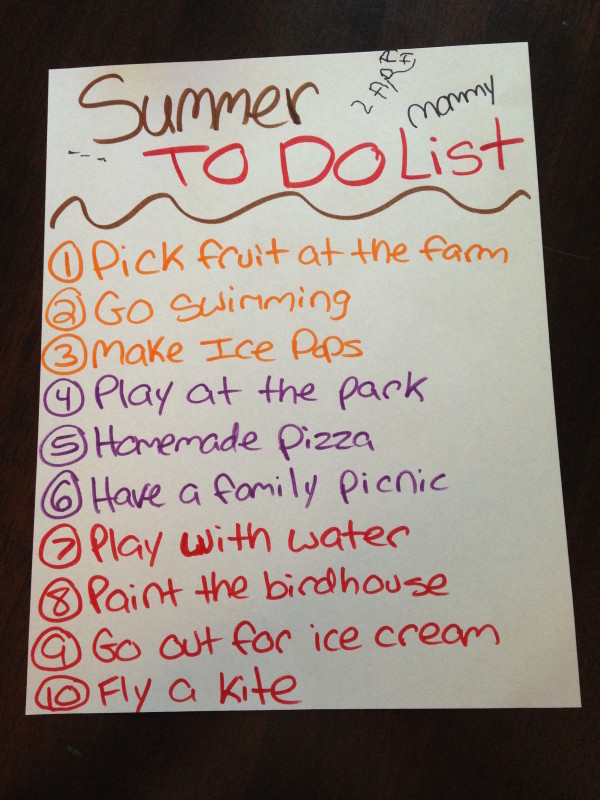 Summer
Mommy
TO DO List
1 Pick fruit at the farm
2 Go swimming
3 Make Ice Pops
4 Play at the park
5 Homemade pizza
6 Have a family picnic
7 Play with water
8 Paint the birdhouse
9 Go out for ice cream
10 Fly a kite